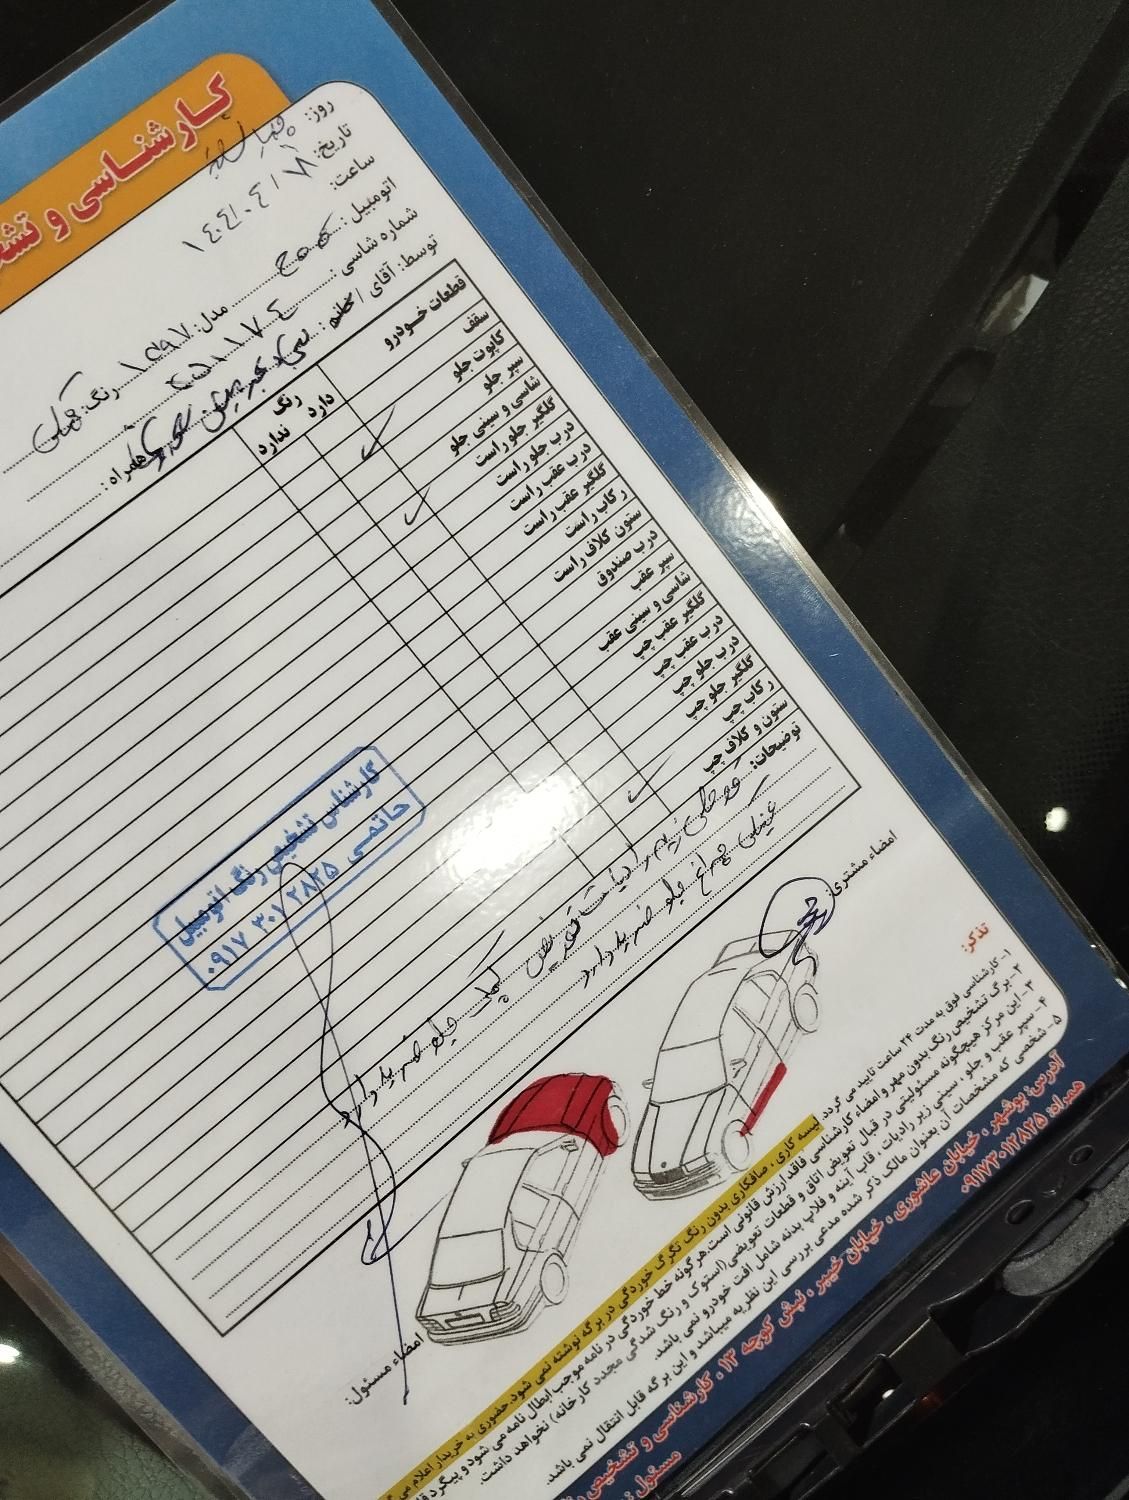 کارشناسی و تشخ
روز: چهارشنبه
تاریخ: ۱۴۰۴/۰۴/۱۸
ساعت:
اتومبیل: مدل: ۱۳۹۷ رنگ:
شماره شاسی: ۴۵۱۱۷۴
توسط: آقای / خانم: همراه:
قطعات خودرو رنگ
دارد ندارد
سقف
کاپوت جلو
سپر جلو
شاسی و سینی جلو
گلگیر جلو راست
درب جلو راست
درب عقب راست
گلگیر عقب راست
رکاب راست
ستون کلاف راست
درب صندوق
سپر عقب
شاسی و سینی عقب
گلگیر عقب چپ
درب عقب چپ
درب جلو چپ
گلگیر جلو چپ
رکاب چپ
ستون و کلاف چپ
توضیحات: سینی زیر رادیات تعویض کمک جلو ضربه دارد
سینی چراغ جلو ضربه دارد
کارشناس تشخیص رنگ اتومبیل
حاتمی ۰۹۱۷ ۳۰۱ ۲۸۲۵
امضاء مشتری:
امضاء مسئول:
تذکر:
۱- کارشناسی فوق به مدت ۲۴ ساعت تایید می گردد. لیسه کاری ، صافکاری بدون رنگ تگرگ خوردگی در برگه نوشته نمی شود. حضوری به خریدار اعلام می
۲- برگ تشخیص رنگ بدون مهر و امضاء کارشناسی فاقد ارزش قانونی است. هر گونه خط خوردگی در نامه موجب ابطال نامه می شود و پیگرد
۳- این مرکز هیچگونه مسئولیتی در قبال تعویض اتاق و قطعات تعویضی (استوک و رنگ شدگی مجدد کارخانه) نخواهد داشت.
۴- سپر عقب و جلو ، سینی زیر رادیات ، قاب آینه و فلاپ بدنه شامل افت خودرو نمی باشد.
۵- شخصی که مشخصات آن بعنوان مالک ذکر شده مدعی بررسی این نظریه میباشد و این برگه قابل انتقال نمی باشد.
آدرس: بوشهر ، خیابان عاشوری ، خیابان خیبر ، نبش کوچه ۱۳ ، کارشناسی و تشخیص
همراه: ۰۹۱۷۳۰۱۲۸۲۵
مسئول